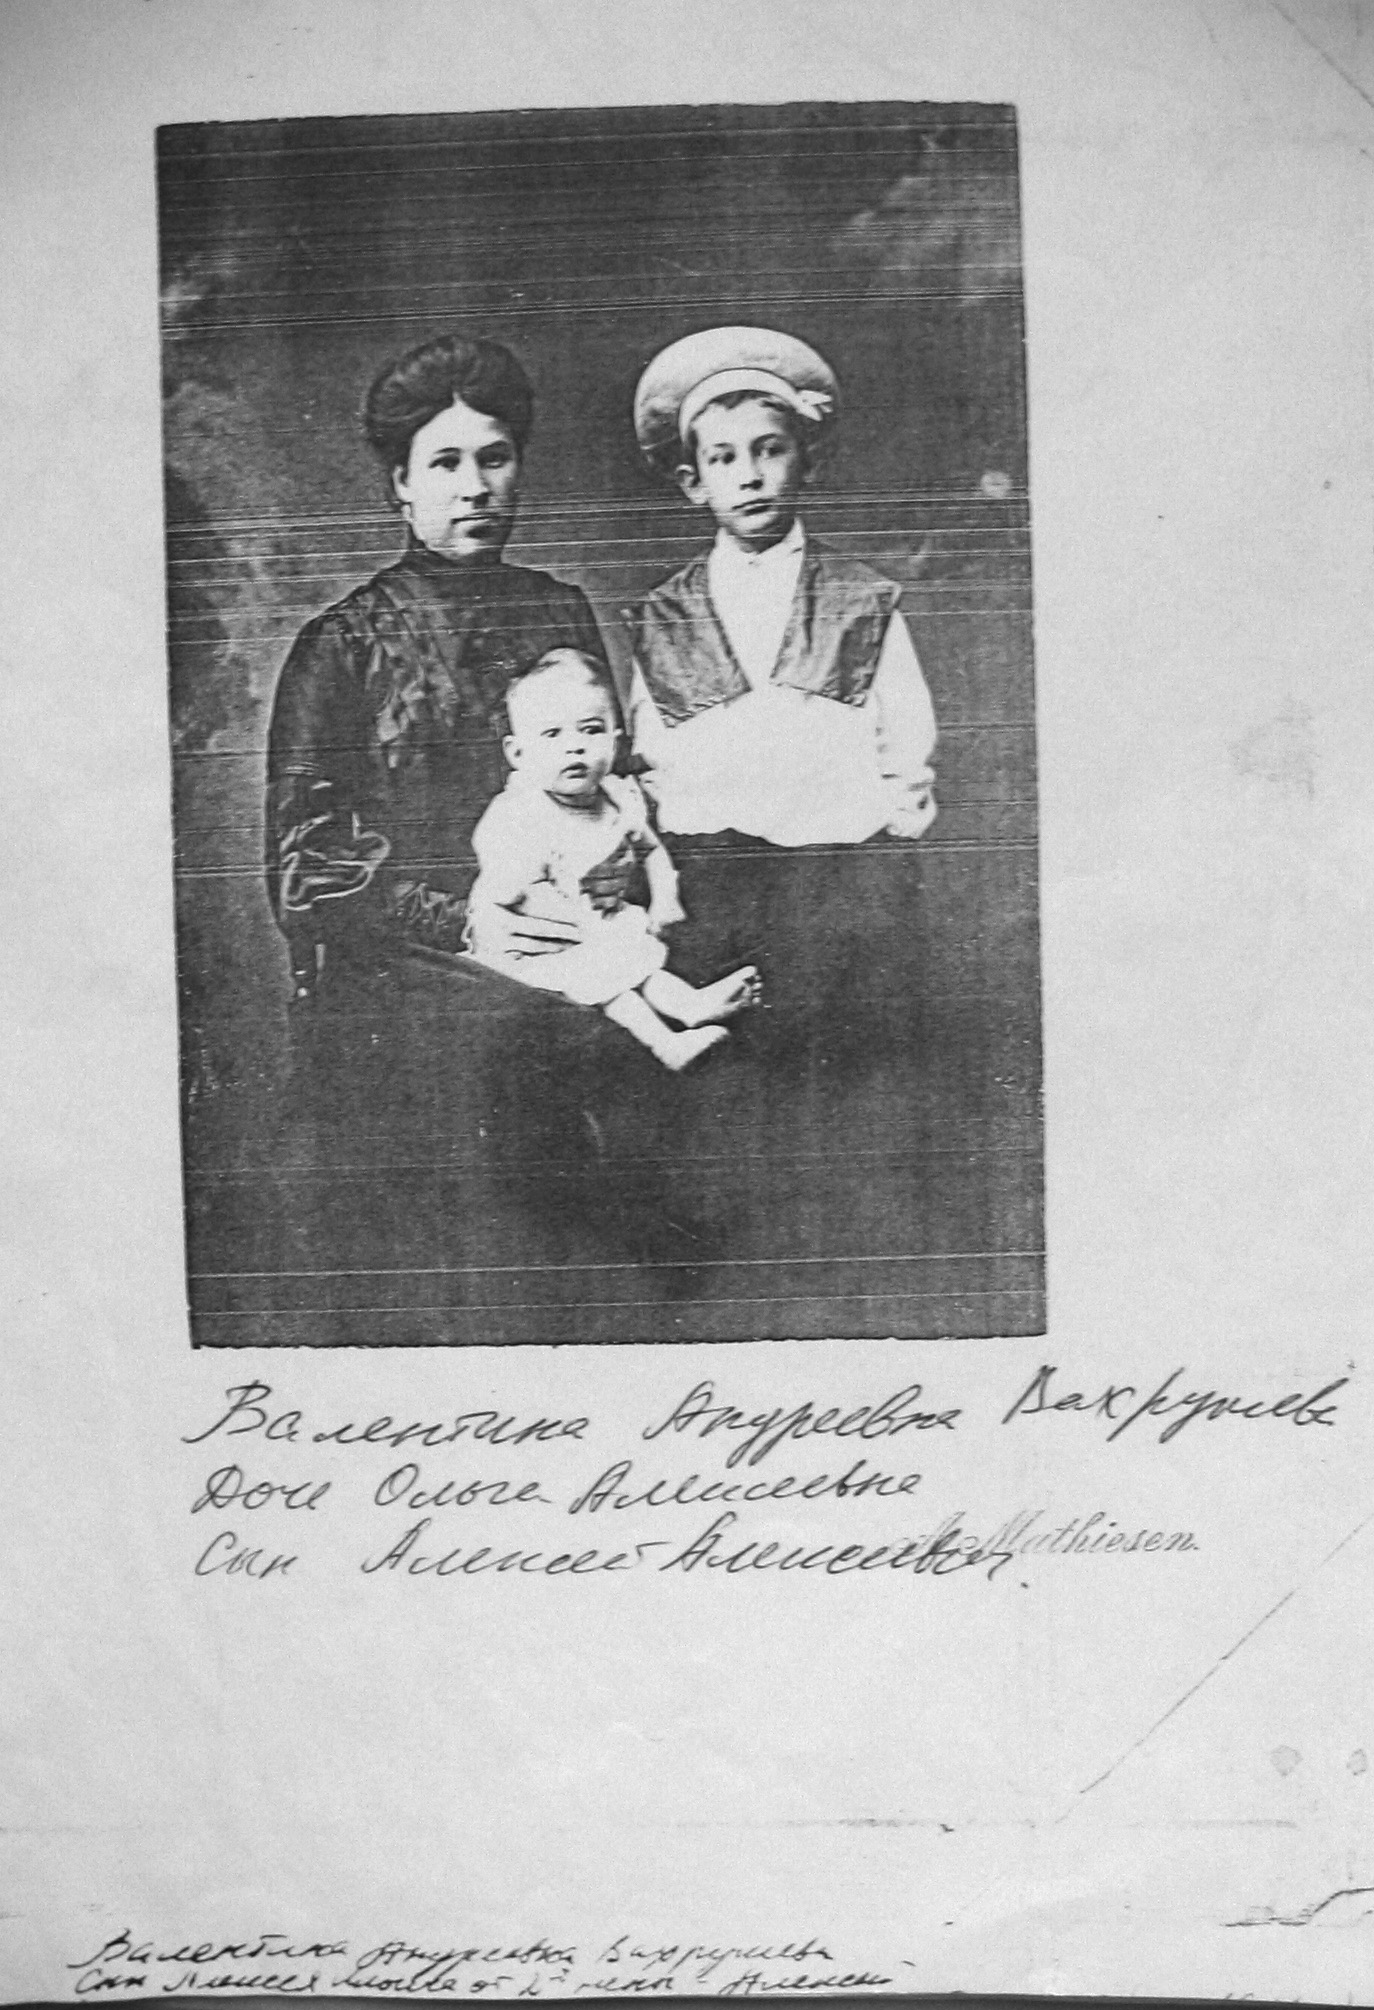 Валентина Андреевна Вахрушева
Дочь Ольга Алексеевна
Сын Алексей Алексеевич.
Mathiesen.
Валентина Андреевна Вахрушева
Сын Алексея от 2й жены - Алексей